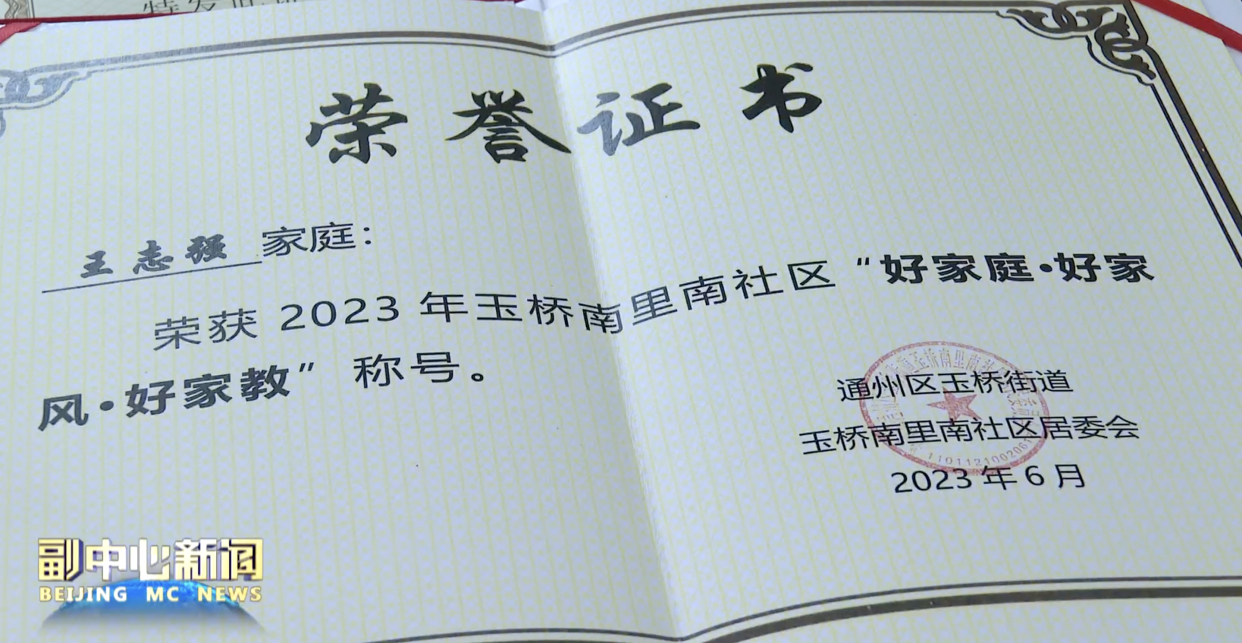 荣誉证书
王志强 家庭：
荣获 2023 年玉桥南里南社区“好家庭·好家
风·好家教”称号。
通州区玉桥街道
玉桥南里南社区居委会
2023 年 6 月
副中心新闻
BEIJING MC NEWS